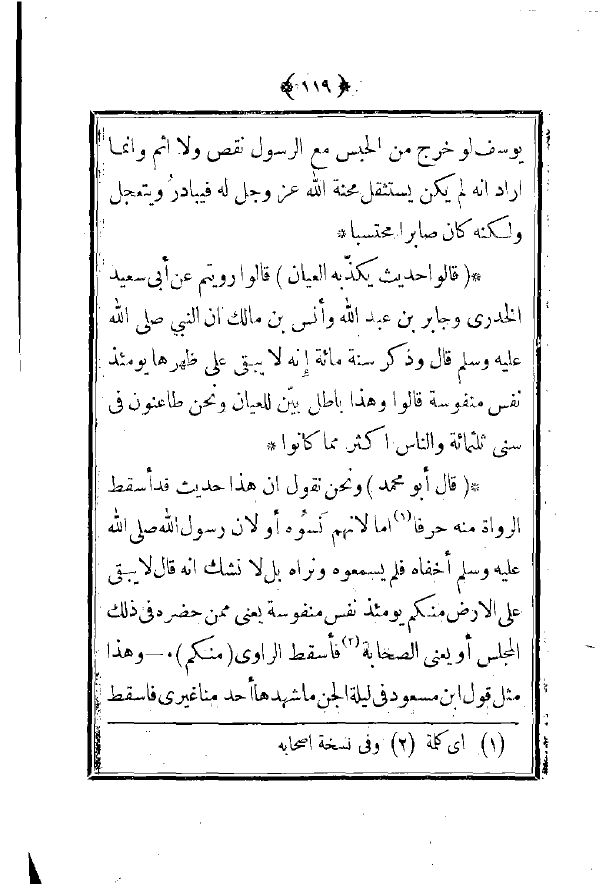 ﴿ ١١٩ ﴾
يوسف لو خرج من الحبس مع الرسول نقص ولا اثم وانما
اراد انه لم يكن يستثقل محنة الله عز وجل له فيبادرُ ويتعجل
ولكنه كان صابرا محتسبا *
*( قالوا حديث يكذّبه العيان ) قالوا رويتم عن أبى سعيد
الخدرى وجابر بن عبد الله وأنس بن مالك ان النبي صلى الله
عليه وسلم قال وذكر سنة مائة إنه لا يبقى على ظهرها يومئذ
نفس منفوسة قالوا وهذا باطل بيّن للعيان ونحن طاعنون فى
سنى ثلثمائة والناس اكثر مما كانوا *
*( قال أبو محمد ) ونحن نقول ان هذا حديث قد أسقط
الرواة منه حرفا (١) اما لانهم نَسُوه أو لان رسول الله صلى الله
عليه وسلم أخفاه فلم يسمعوه ونراه بل لا نشك انه قال لا يبقى
على الارض منكم يومئذ نفس منفوسة يعنى ممن حضره فى ذلك
المجلس أو يعنى الصحابة (٢) فأسقط الراوى (منكم) ٠ — وهذا
مثل قول ابن مسعود فى ليلة الجن ما شهدها أحد منا غيرى فاسقط
(١) اى كلمة (٢) وفى نسخة اصحابه